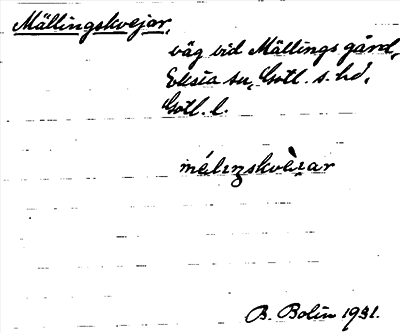 Mällingskvejar,
väg vid Mällings gård,
Eksta sn, Gotl. s. hd,
Gotl. l.
B. Bolin 1931.